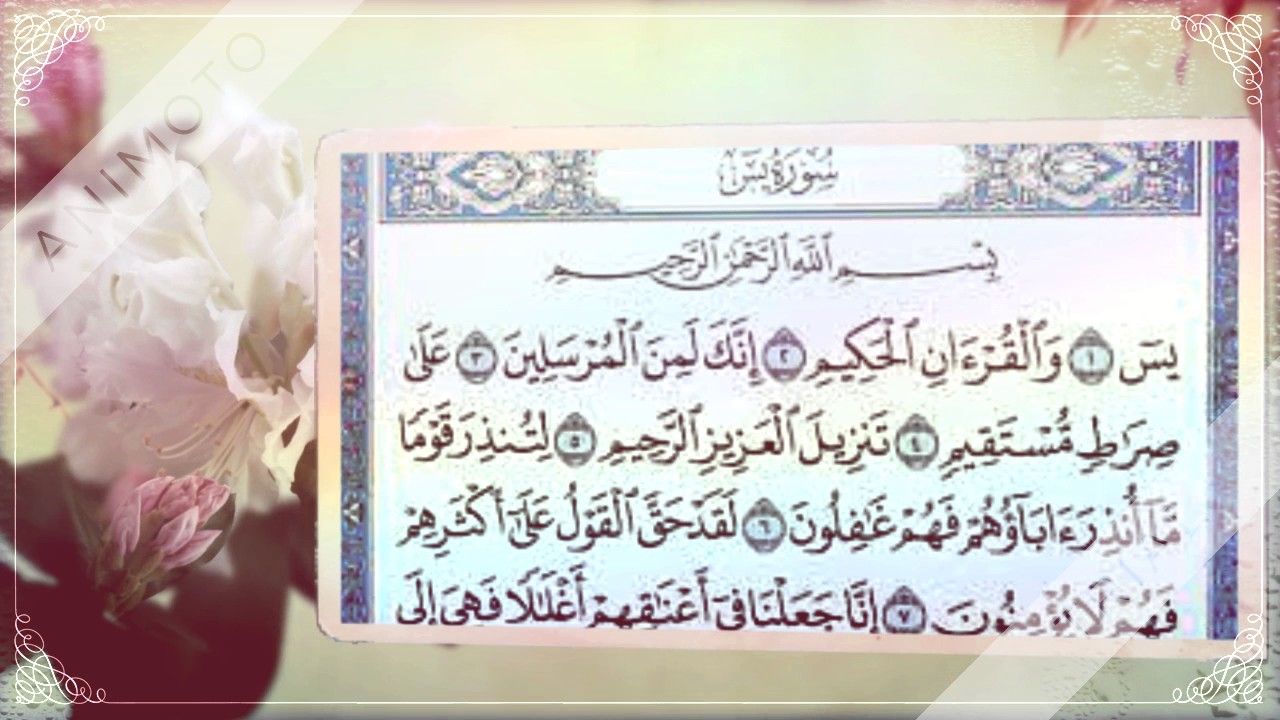 ANIMOTO
سُورَةُ يسٓ
بِسْمِ ٱللَّهِ ٱلرَّحْمَٰنِ ٱلرَّحِيمِ
يسٓ ١ وَٱلْقُرْءَانِ ٱلْحَكِيمِ ٢ إِنَّكَ لَمِنَ ٱلْمُرْسَلِينَ ٣ عَلَىٰ
صِرَٰطٍ مُّسْتَقِيمٍ ٤ تَنزِيلَ ٱلْعَزِيزِ ٱلرَّحِيمِ ٥ لِتُنذِرَ قَوْمًا
مَّآ أُنذِرَ ءَابَآؤُهُمْ فَهُمْ غَٰفِلُونَ ٦ لَقَدْ حَقَّ ٱلْقَوْلُ عَلَىٰٓ أَكْثَرِهِمْ
فَهُمْ لَا يُؤْمِنُونَ ٧ إِنَّا جَعَلْنَا فِىٓ أَعْنَٰقِهِمْ أَغْلَٰلًا فَهِىَ إِلَى